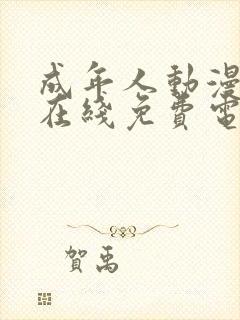 成年人動漫
在綫免費電
賀禹